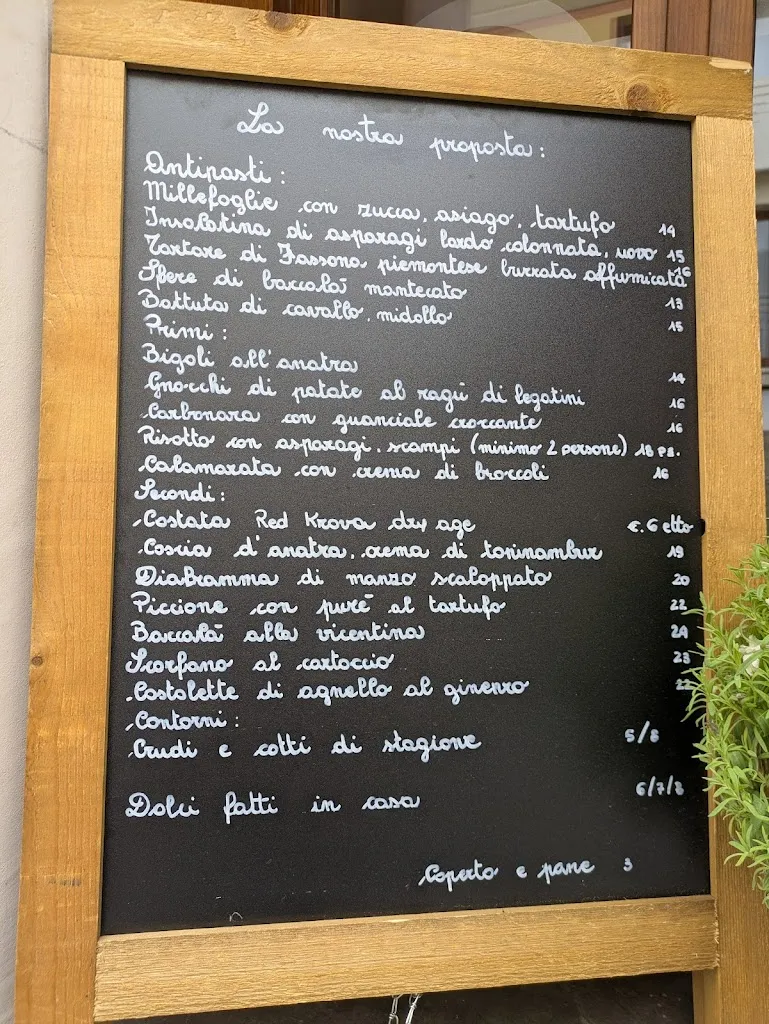 La nostra proposta:
Antipasti:
Millefoglie con zucca, asiago, tartufo 14
Insalatina di asparagi lardo colonnata, uovo 15
Tartare di Fassona piemontese burrata affumicata 16
Sfere di baccalà mantecato 13
Battuta di cavallo, midollo 15
Primi:
Bigoli all'anatra 14
Gnocchi di patate al ragù di legatini 16
Carbonara con guanciale croccante 16
Risotto con asparagi, scampi (minimo 2 persone) 18 p.
Calamarata con crema di broccoli 16
Secondi:
Costata Red Krova dry age €. 6 etto
Coscia d'anatra, crema di topinambur 19
Diaframma di manzo scaloppato 20
Piccione con purè al tartufo 22
Baccalà alla vicentina 21
Scorfano al cartoccio 23
Costolette di agnello al ginepro 22
Contorni:
Crudi e cotti di stagione 5/8
Dolci fatti in casa 6/7/8
Coperto e pane 3